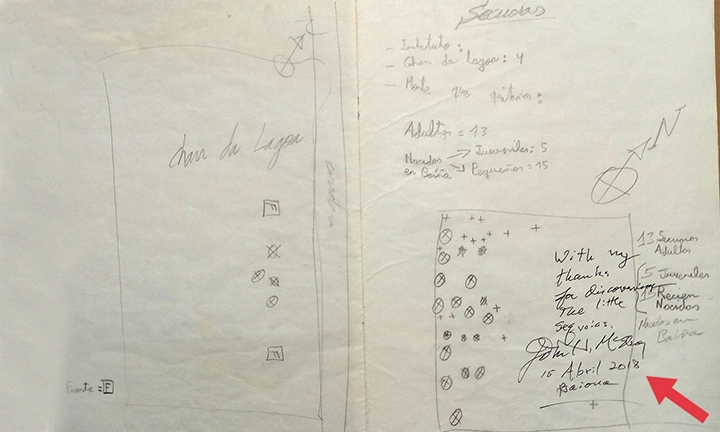 Chan da Lagoa
Fuente = F
Secuoias
- Instituto :
- Chan da Lagoa : 4
- Monte
Adultas = 13
Nacidas en Baiña
Juveniles = 5
Pequeñas = 15
N
13 Secuoias
Adultas
5 Juveniles
15 Recien
Nacidas
Nacidas en
Baiña
With my
thanks
for discovering
the little
sequoias.
John N.
15 Abril 2018
Baiona